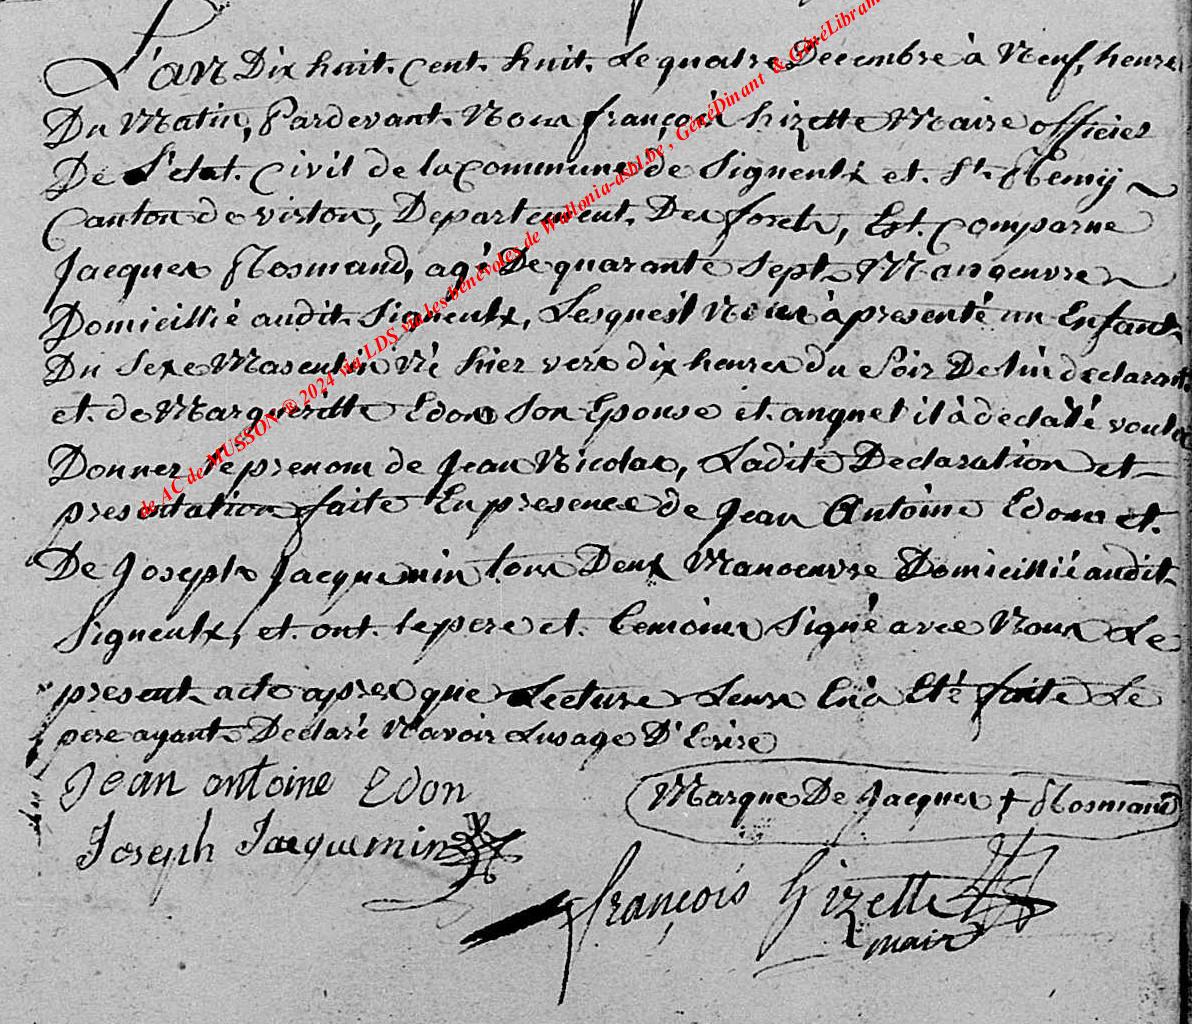 L'an Dix huit. cent. huit. Le quatre Decembre à Neuf, heures
Du Matin, Pardevant Nous françois hizette Maire officier
De L'etat. Civil de la Commune de Signeulx et. St. Remÿ
Canton de virton, Departement. Des forets, Est. Comparue
Jacques Rosmand, agé De quarante Sept Manoeuvre
Domicillié audit Signeulx, Lesquest Nous à presenté un Enfant
Du Sexe Masculin Né hier vers dix heures du Soir De lui declarant
et. de Margueritte Edon Son Epouse et. auquel il à declaré vouloir
Donner le prenom de Jean Nicolas, Ladite Declaration et
presentation faite En presence de Jean Antoine Edon et.
De Joseph Jacquemin tous Deux Manoeuvre Domicillié audit
Signeulx, et. ont. le pere et. temoins Signé avec Nous Le
present acte apres que Lecture Leurs En à Eté faite Le
pere ayant Declaré N'avoir Lusage D'Ecrire
Jean antoine Edon
Marque De Jacques + Rosmand
Joseph Jacquemin
françois hizette
mair
de AC de MUSSON ® 2024 via LDS via les bénévoles de Wallonia-asbl.be , GénéDinant & GénéLibram